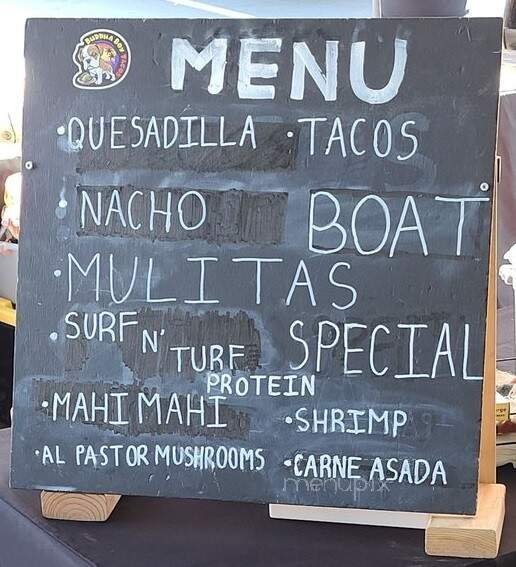 BUDDHA BOY TACOS
MENU
•QUESADILLA •TACOS
•NACHO BOAT
•MULITAS
•SURF N' TURF SPECIAL
PROTEIN
•MAHI MAHI •SHRIMP
•AL PASTOR MUSHROOMS •CARNE ASADA
menupix